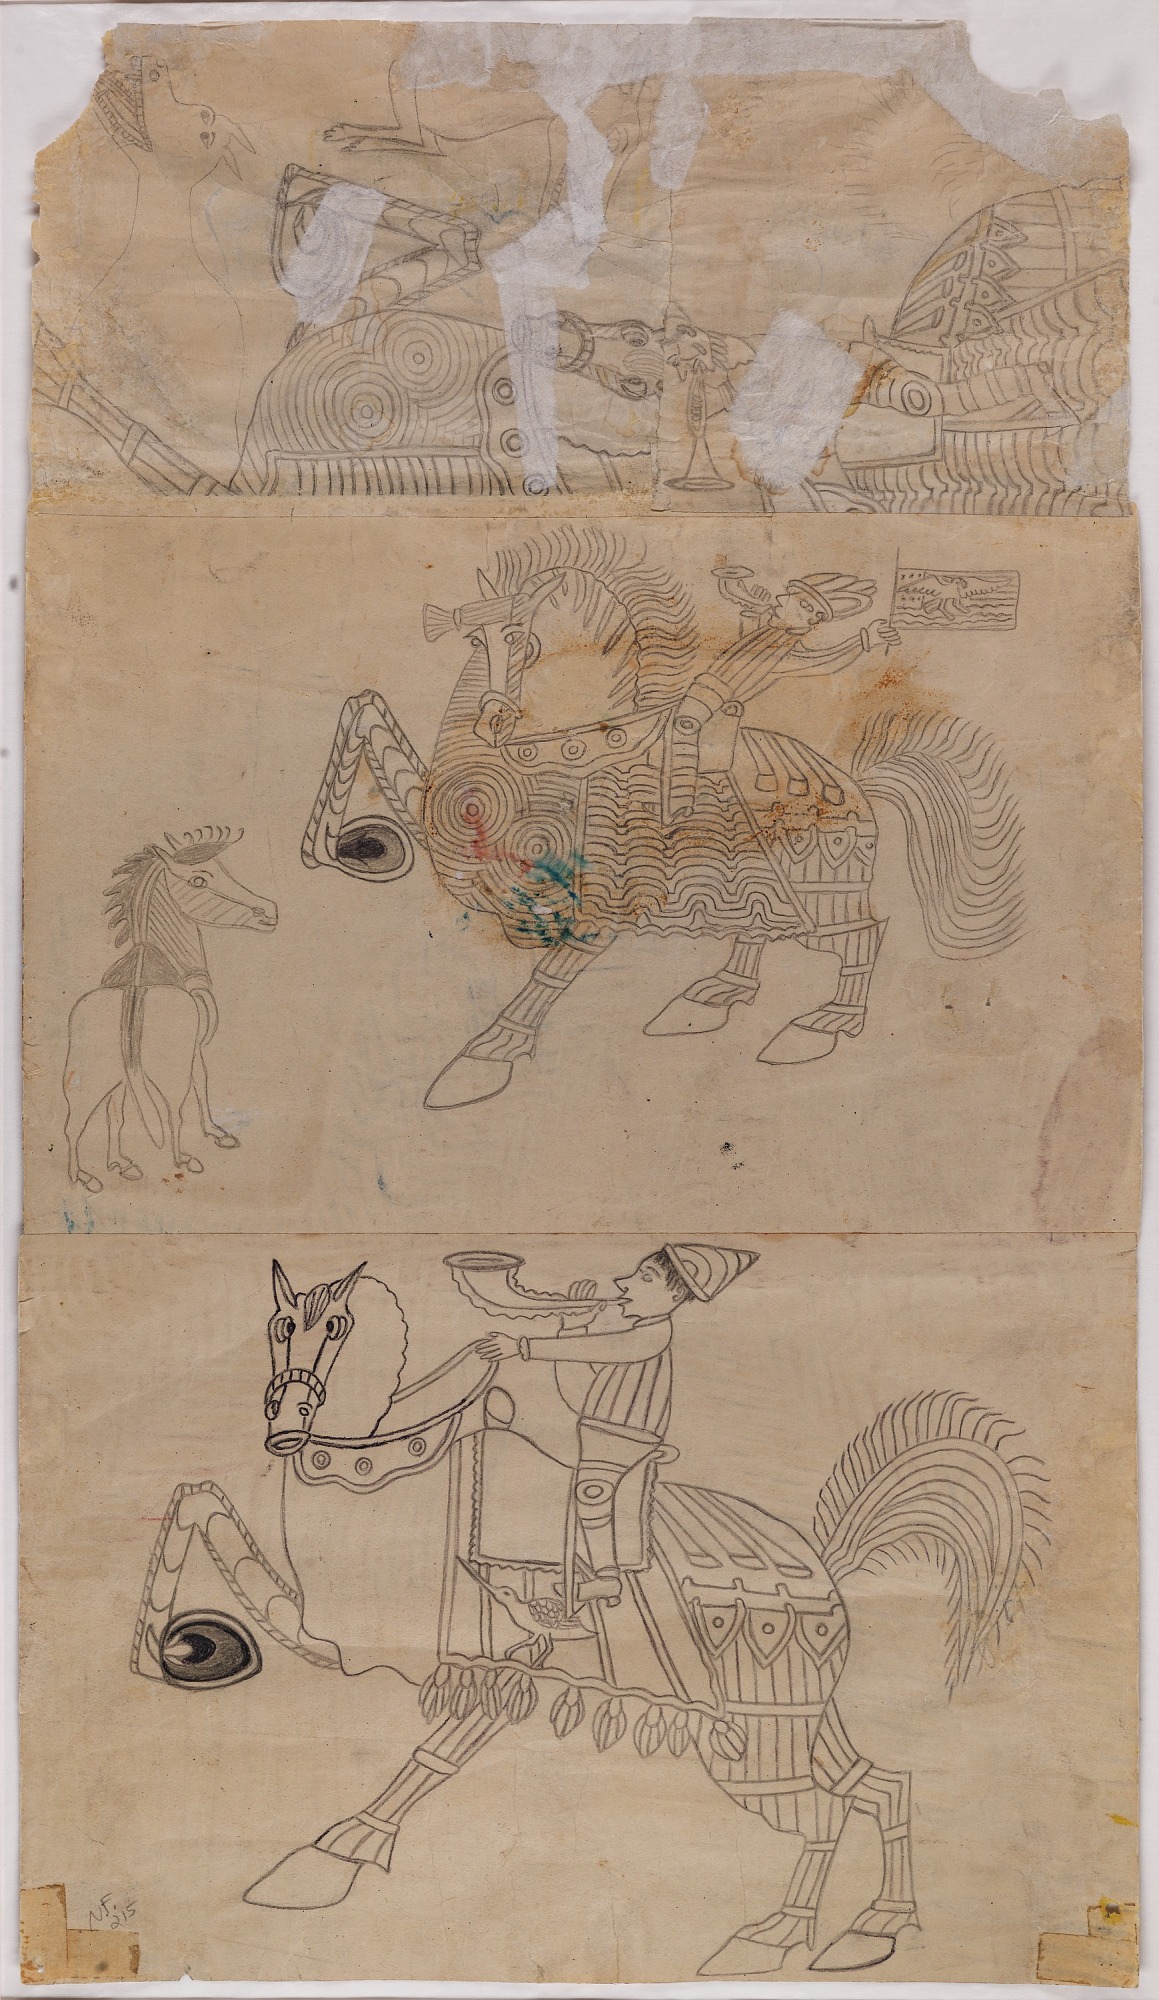 N.F.
215